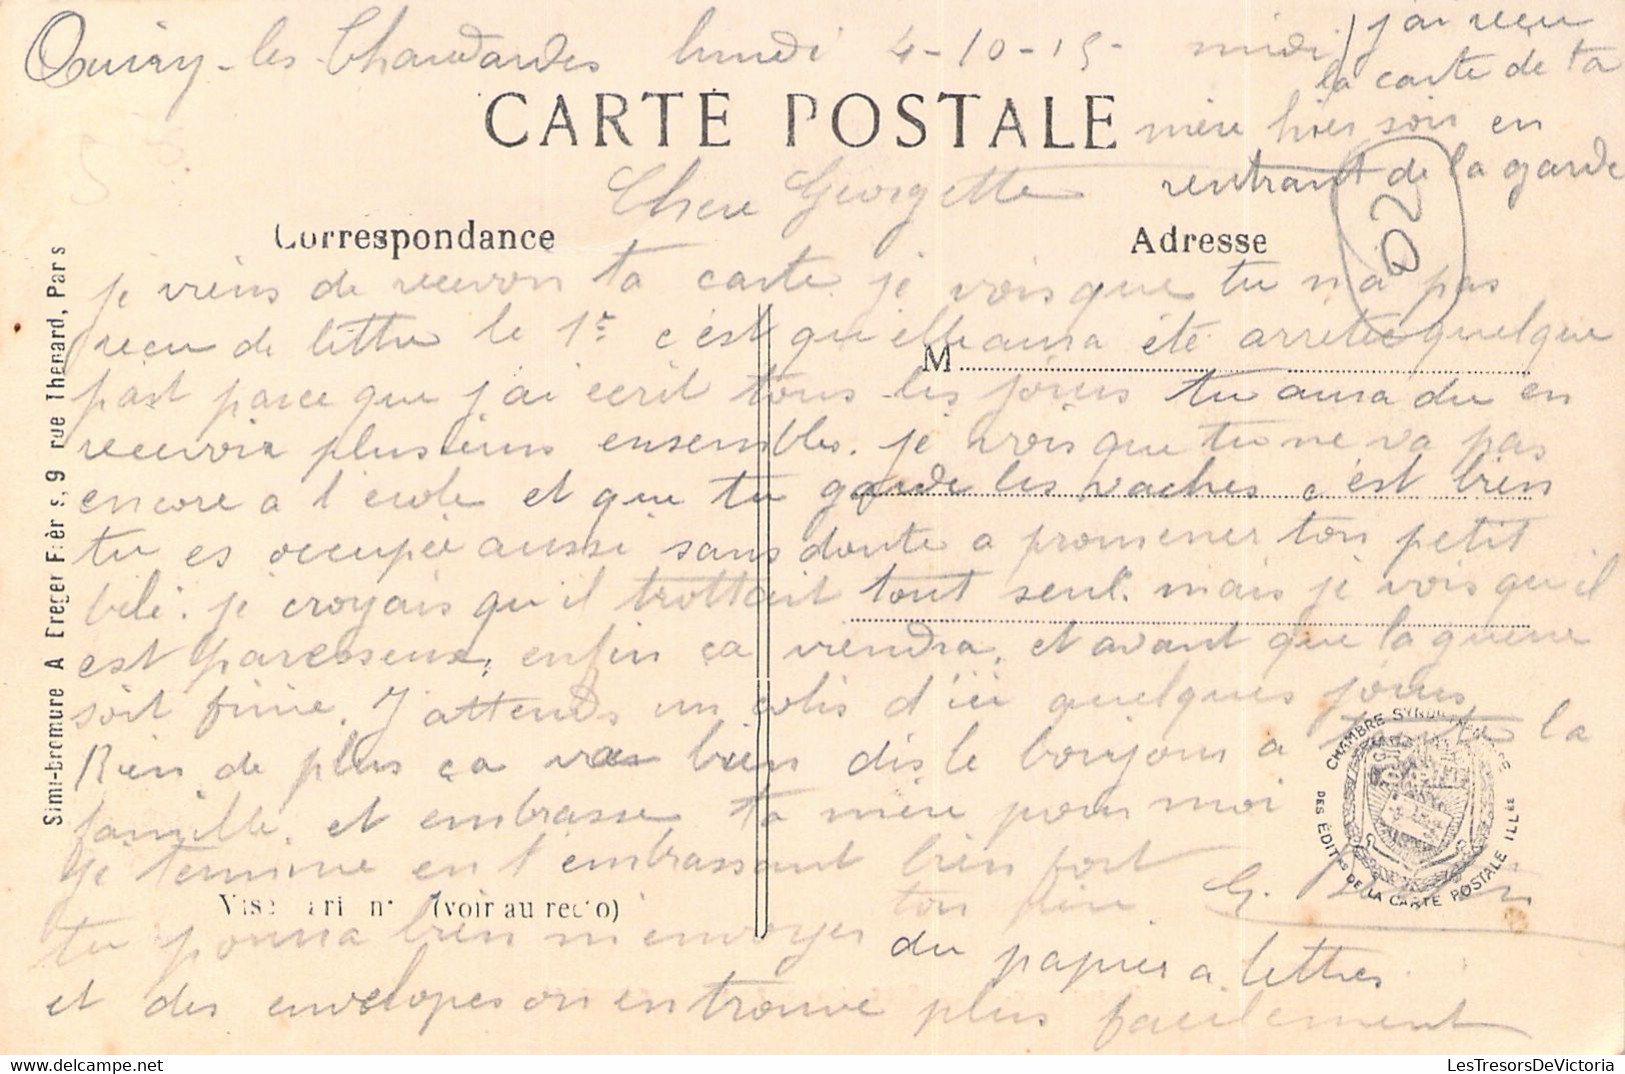 Ouiry-les-Chaudardes lundi 4-10-15- midi j'ai reçu
la carte de ta
mère hier soir en
rentrant de la garde
CARTE POSTALE
Chere Georgette
02
Correspondance
Adresse
je viens de recevoir ta carte je vois que tu n'a pas
reçu de lettre le 1er c'est qu'elle aura été arretée quelque
part parce que j'ai ecrit tous les jours tu aura du en
recevoir plusieurs ensembles. je vois que tu ne va pas
encore a l'école et que tu garde les vaches c'est bien
tu es occupée aussi sans doute a promener ton petit
bébé. je croyais qu'il trottait tout seul. mais je vois qu'il
est paresseux, enfin ça viendra, et avant que la guerre
soit finie. J'attends un colis d'ici quelques jours
Rien de plus ça va bien dis le bonjour a toute la
famille. et embrasse ta mère pour moi
je termine en t'embrassant bien fort
ton père G.
tu pourra bien m'envoyer du papier a lettres
et des envelopes on en trouve plus facilement
M
(voir au recto)
Simi-bromure A Breger Frères, 9 rue Thenard, Paris
CHAMBRE SYNDICALE
DES EDITEURS DE LA CARTE POSTALE ILLée
LesTresorsDeVictoria